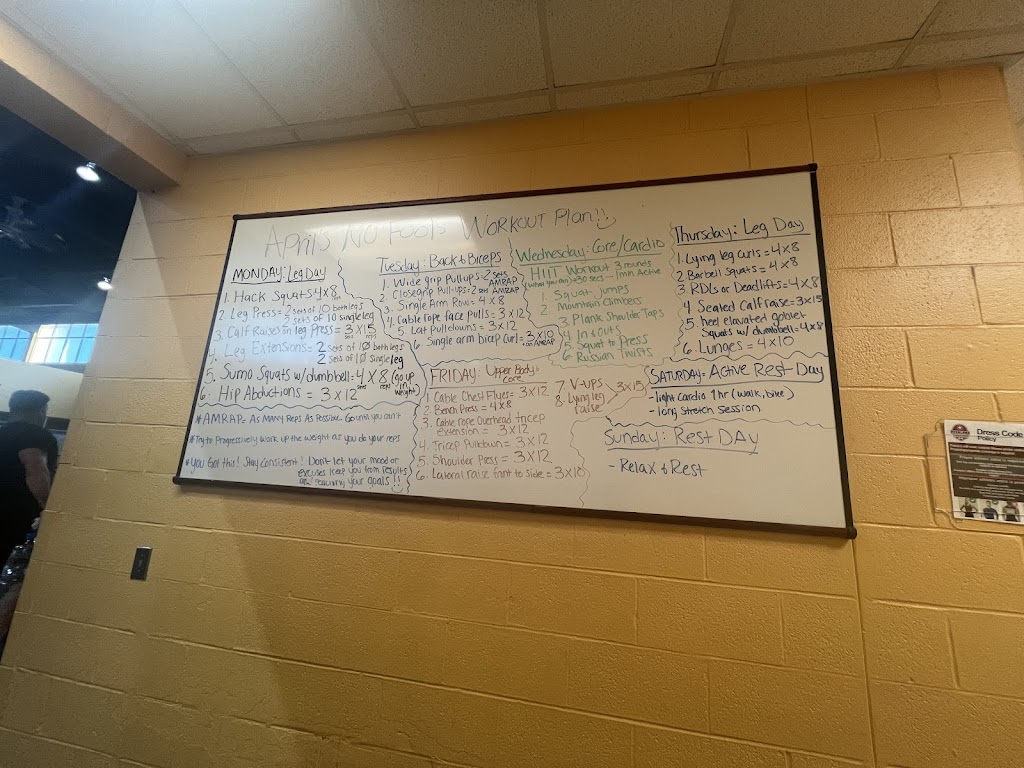 April's No Fools Workout Plan!!
MONDAY: Leg Day
1. Hack Squats 4x8
2. Leg Press = 2 sets of 10 both legs
sets of 10 single leg
3. Calf Raises on leg Press = 3 x 15
sets reps
4. Leg Extensions = 2 sets of 10 both legs
2 sets of 10 single leg
5. Sumo Squats w/ dumbbell = 4 x 8 (go up in weight)
sets reps
6. Hip Abductions = 3 x 12
* AMRAP = As Many Reps As Possible. Go until you can't
* Try to Progressively work up the weight as you do your reps
* You Got this! Stay Consistent! Don't let your mood or
excuses keep you from results
and reaching your goals!!
Tuesday: Back & Biceps
1. Wide grip Pullups = 2 sets AMRAP
2. Closegrip Pull-ups = 2 sets AMRAP
3. Single Arm Row = 4 x 8
4. Cable rope face pulls = 3 x 12
5. Lat Pulldowns = 3 x 12
6. Single arm bicep Curl =
Wednesday: Core/Cardio
HIIT Workout 3 rounds
(what you can) = 30 secs - 1 min Active
1. Squat Jumps
2. Mountain Climbers
3. Plank Shoulder Taps
4. In & Outs
5. Squat to Press
6. Russian Twists
Thursday: Leg Day
1. Lying leg curls = 4 x 8
2. Barbell Squats = 4 x 8
3. RDLs or Deadlifts = 4 x 8
4. Seated Calf raise = 3 x 15
5. heel elavated goblet
Squats w/ dumbbell = 4 x 8
6. Lunges = 4 x 10
FRIDAY: Upper Body & Core
1. Cable Chest Flyes = 3 x 12
2. Bench Press = 4 x 8
3. Cable rope Overhead tricep
extension = 3 x 12
4. Tricep Pulldown = 3 x 12
5. Shoulder Press = 3 x 12
6. Lateral raise front to side = 3 x 10
7. V-ups
8. Lying leg raise
3 x 15
SATURDAY: Active Rest Day
- light Cardio 1 hr (walk, bike)
- long stretch session
Sunday: Rest Day
- Relax & Rest
Dress Code
Policy